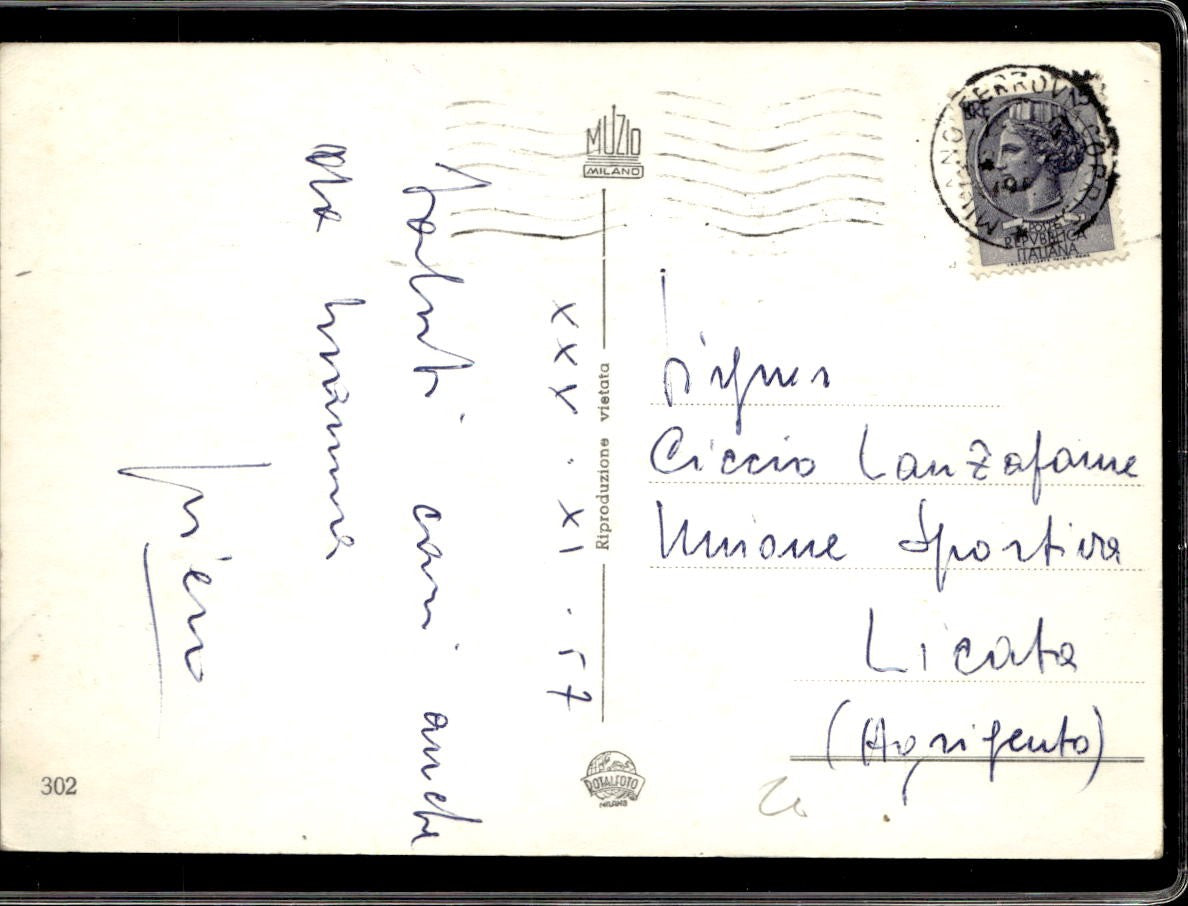 XXV . XI . 57
Saluti cari anche
alla mamma
Piero
MUZIO
MILANO
Riproduzione vietata
ROTALFOTO
MILANO
302
MILANO FERROVIA
LIRE 15
POSTE
REPVBBLICA
ITALIANA
Signor
Ciccio Lanzafame
Unione Sportiva
Licata
(Agrigento)